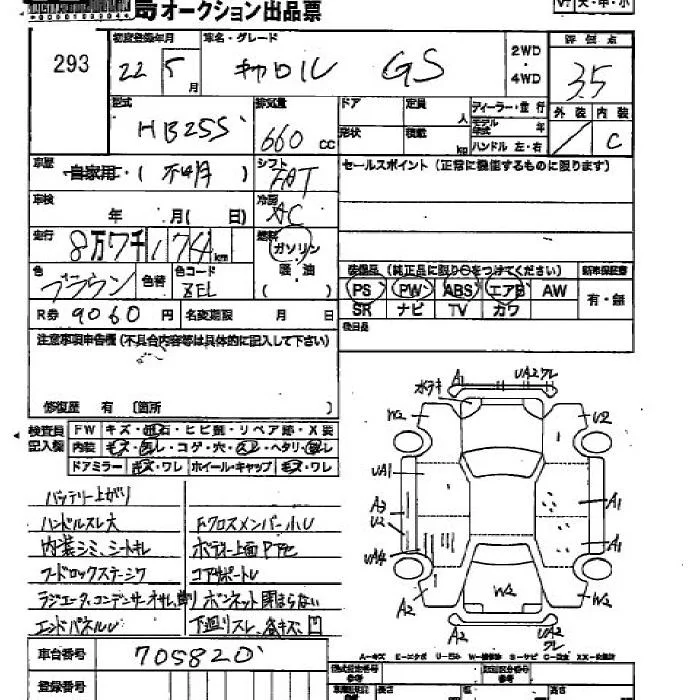 オークション出品票
大・中・小
293
初度登録年月
車名・グレード
22 5 月
キャロル GS
2WD
・
4WD
評価点
3.5
型式
HB25S
排気量
660 cc
ドア
定員 人
形状
積載 kg
ディーラー・並行
モデル年式 年
ハンドル 左・右
外装 内装
C
車歴
自家用・( )
シフト
FAT
セールスポイント (正常に機能するものに限ります)
車検
年 月( 日)
冷房
AC
走行
8万7千174km
燃料
ガソリン
軽油
( )
色
ブラウン
色替
色コード
ZEL
装備品 (純正品に限り○をつけてください)
新車保証書
PS PW ABS エアB AW
SR ナビ TV カワ
有・無
R券 9060円
名変期限 月 日
後日品
注意事項申告欄 (不具合内容等は具体的に記入して下さい)
修復歴 有 (箇所 )
検査員記入欄
FW キズ・飛石・ヒビ割・リペア跡・X要
内装
ドアミラー キズ・ワレ ホイール・キャップ キズ・ワレ
バッテリー上がり
ハンドルスレ大
FクロスメンバーU
内装シミ、シートキレ
フードロックステージワ
コアサポートU
ボンネット閉まらない
エンドパネルU
下廻りスレ
車台番号 705820
登録番号
A1
UA2 ワレ
W2
U2
UA1
A3
U2
UA4
A2
A1
A1
W2
W2
A2
UA2
ワレ